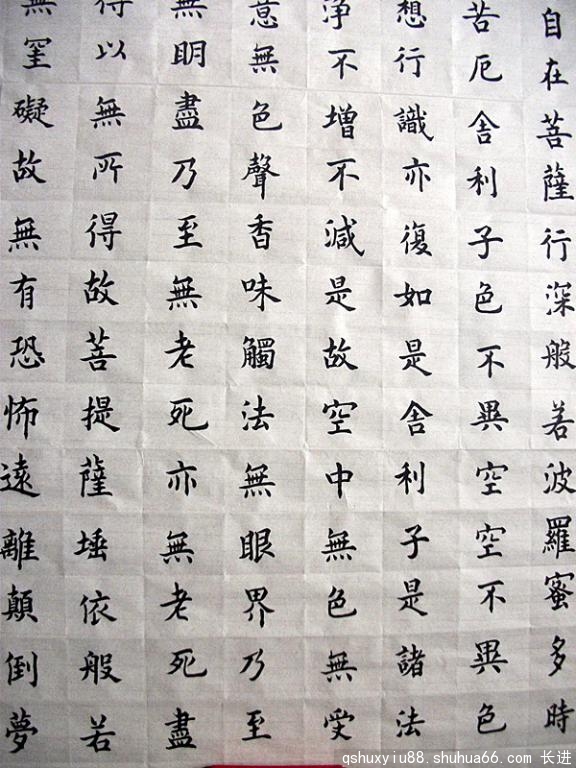 自在菩薩行深般若波羅蜜多時
苦厄舍利子色不異空空不異色
想行識亦復如是舍利子是諸法
浄不增不減是故空中無色無受
意無色聲香味觸法無眼界乃至
無明盡乃至無老死亦無老死盡
得以無所得故菩提薩埵依般若
無罣礙故無有恐怖遠離顛倒夢
qshuxyiu88.shuhua66.com 长进